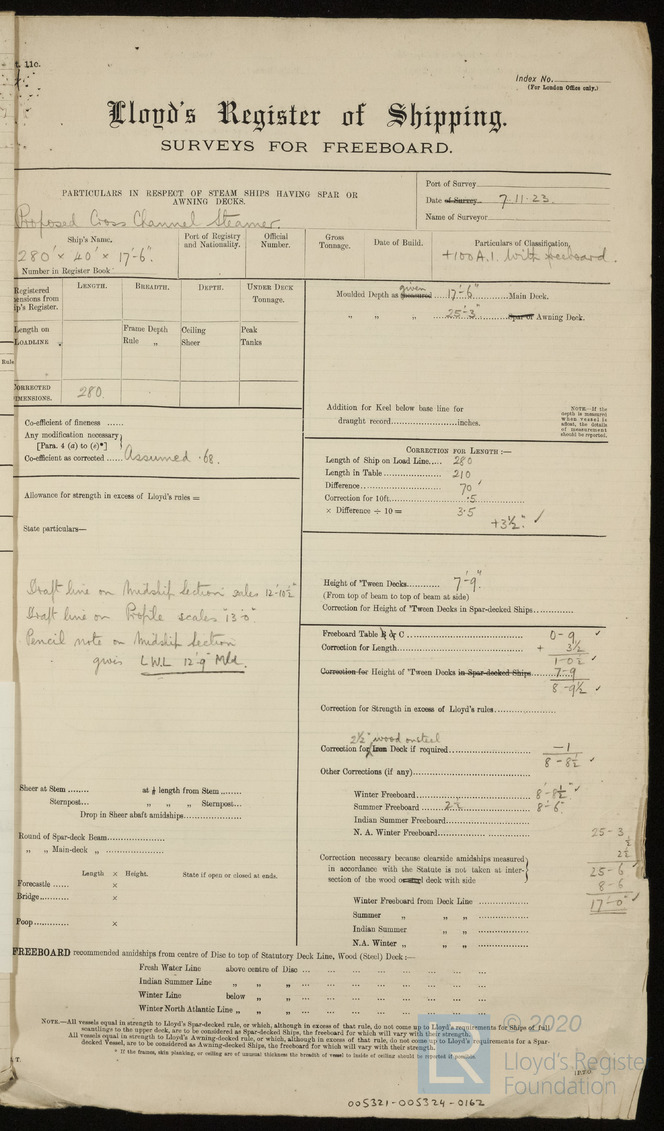 t. 11c.
Index No.
(For London Office only.)
Lloyd's Register of Shipping.
SURVEYS FOR FREEBOARD.
PARTICULARS IN RESPECT OF STEAM SHIPS HAVING SPAR OR
AWNING DECKS.
Port of Survey
Date of Survey 7-11-23.
Name of Surveyor
Proposed Cross Channel Steamer.
Ship's Name.
Port of Registry
and Nationality.
Official
Number.
Gross
Tonnage.
Date of Build.
Particulars of Classification,
280' × 40' × 17'-6".
+100A.1. With freeboard.
Number in Register Book
Registered
ensions from
ip's Register.
LENGTH.
BREADTH.
DEPTH.
UNDER DECK
Tonnage.
Length on
LOADLINE
Frame Depth
Rule "
Ceiling
Sheer
Peak
Tanks
Rule
CORRECTED
DIMENSIONS.
280.
Moulded Depth as measured given 17'-6" Main Deck.
" " " 25'-3" Spar or Awning Deck.
Addition for Keel below base line for
draught record inches.
NOTE.—If the
depth is measured
when vessel is
afloat, the details
of measurement
should be reported.
Co-efficient of fineness
Any modification necessary
[Para. 4 (a) to (e)*]
Co-efficient as corrected Assumed .68.
CORRECTION FOR LENGTH :—
Length of Ship on Load Line 280
Length in Table 210
Difference 70
Correction for 10ft. .5
× Difference ÷ 10 = 3.5
+3½"
Allowance for strength in excess of Lloyd's rules =
State particulars—
Draft line on Midship Section scales 12'-10½"
Draft line on Profile scales "13'-0"
Pencil note on Midship Section
gives L.W.L 12'-9" Mld.
Height of 'Tween Decks 7'-9"
(From top of beam to top of beam at side)
Correction for Height of 'Tween Decks in Spar-decked Ships
Freeboard Table B or C 0-9
Correction for Length + 3½
1-0½
Correction for Height of 'Tween Decks in Spar-decked Ships 7-9
8-9½
Correction for Strength in excess of Lloyd's rules
2½" wood on steel
Correction for Iron Deck if required -1
8-8½
Other Corrections (if any)
Winter Freeboard 8'-8½"
Summer Freeboard 2½ 8'-6"
Indian Summer Freeboard
N. A. Winter Freeboard
25-3
½
2½
25-6
8-6
17'-0"
Correction necessary because clearside amidships measured
in accordance with the Statute is not taken at inter-
section of the wood or steel deck with side
Winter Freeboard from Deck Line
Summer " " "
Indian Summer " "
N.A. Winter " " "
Sheer at Stem at ⅛ length from Stem
Sternpost " " " Sternpost
Drop in Sheer abaft amidships
Round of Spar-deck Beam
" " Main-deck "
Length × Height. State if open or closed at ends.
Forecastle ×
Bridge ×
Poop ×
FREEBOARD recommended amidships from centre of Disc to top of Statutory Deck Line, Wood (Steel) Deck :—
Fresh Water Line above centre of Disc
Indian Summer Line " " "
Winter Line below " "
Winter North Atlantic Line " " "
NOTE.—All vessels equal in strength to Lloyd's Spar-decked rule, or which, although in excess of that rule, do not come up to Lloyd's requirements for Ships of full
scantlings to the upper deck, are to be considered as Spar-decked Ships, the freeboard for which will vary with their strength.
All vessels equal in strength to Lloyd's Awning-decked rule, or which, although in excess of that rule, do not come up to Lloyd's requirements for a Spar-
decked Vessel, are to be considered as Awning-decked Ships, the freeboard for which will vary with their strength.
* If the frames, skin planking, or ceiling are of unusual thickness the breadth of vessel to inside of ceiling should be reported if possible
T.
© 2020
Lloyd's Register
Foundation
005321-005324-0162